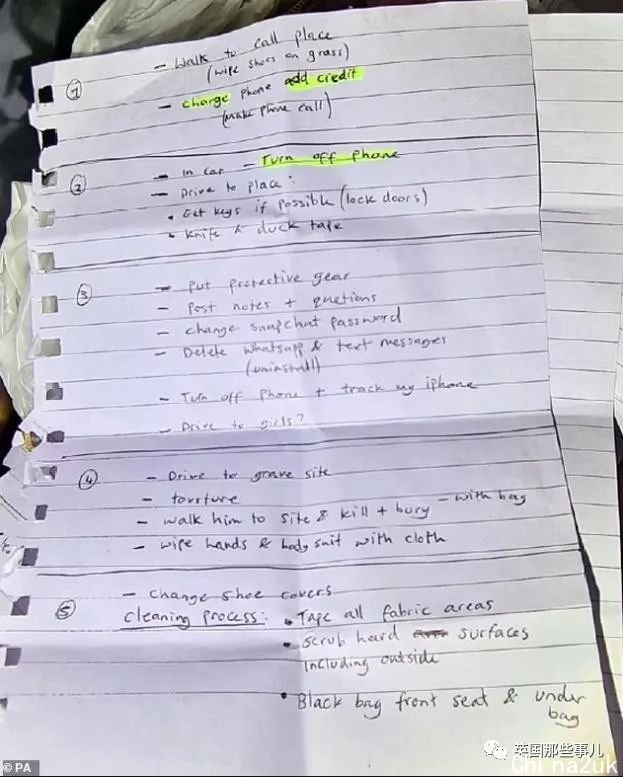 ① - Walk to call place
(wipe shoes on grass)
- charge phone add credit
(make phone call)
② - In car - Turn off phone
- Drive to place:
• Get keys if possible (lock doors)
• Knife & duck tape
③ - Put protective gear
- Post notes + quetions
- change snapchat password
- Delete whatsapp & text messages
(uninstall)
- Turn off phone + track my iphone
- Drive to girls?
④ - Drive to grave site
- tourture
- walk him to site & kill + bury - with bag
- wipe hands & body suit with cloth
⑤ - change shoe covers
cleaning process: • Tape all fabric areas
• Scrub hard surfaces
including outside
• Black bag front seat & under
bag
© PA
英国那些事儿
China2uk